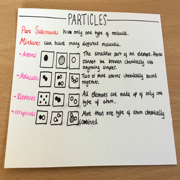 PARTICLES
Pure Substances Have only one type of molecule.
Mixtures can have many different molecules.
- Atoms The smallest part of an element. Atoms
cannot be broken chemically into
anything simpler.
- Molecules Two or more atoms chemically bound
together.
- Elements All elements are made up of only one
type of atom.
- compounds More than one type of atom chemically
combined.